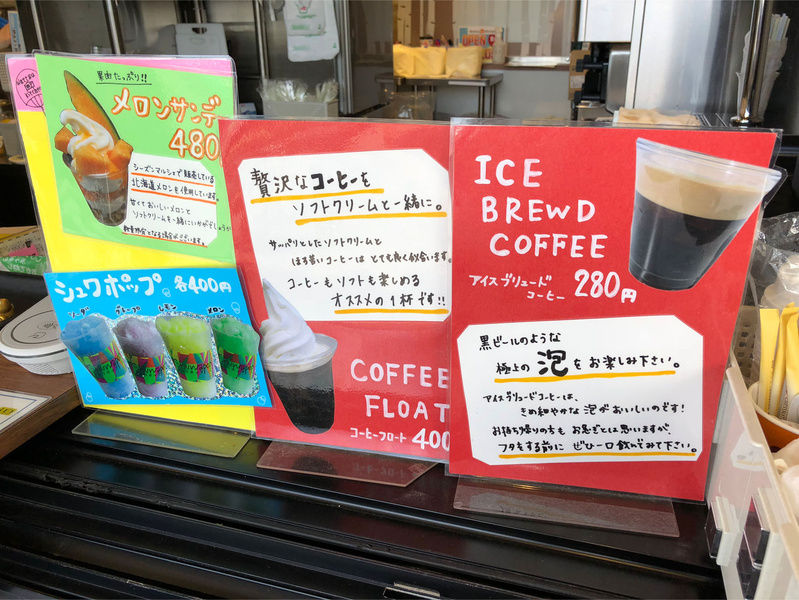 果肉たっぷり!!
メロンサンデ
480
シーズンマルシェで販売している
北海道メロンを使用しています。
甘くておいしいメロンと
ソフトクリームを一緒にいかがでしょうか
シュワポップ 各400円
ソーダ
グレープ
レモン
メロン
贅沢なコーヒーを
ソフトクリームと一緒に。
サッパリとしたソフトクリームと
ほろ苦いコーヒーはとても良く似合います。
コーヒーもソフトも楽しめる
オススメの1杯です!!
COFFEE
FLOAT
コーヒーフロート 400
ICE
BREWD
COFFEE
アイスブリュード
コーヒー 280円
黒ビールのような
極上の泡をお楽しみ下さい。
アイスブリュードコーヒーは、
きめ細やかな泡がおいしいのです!
お持ち帰りの方もお急ぎとは思いますが、
フタをする前にぜひ一口飲んでみて下さい。
OPEN